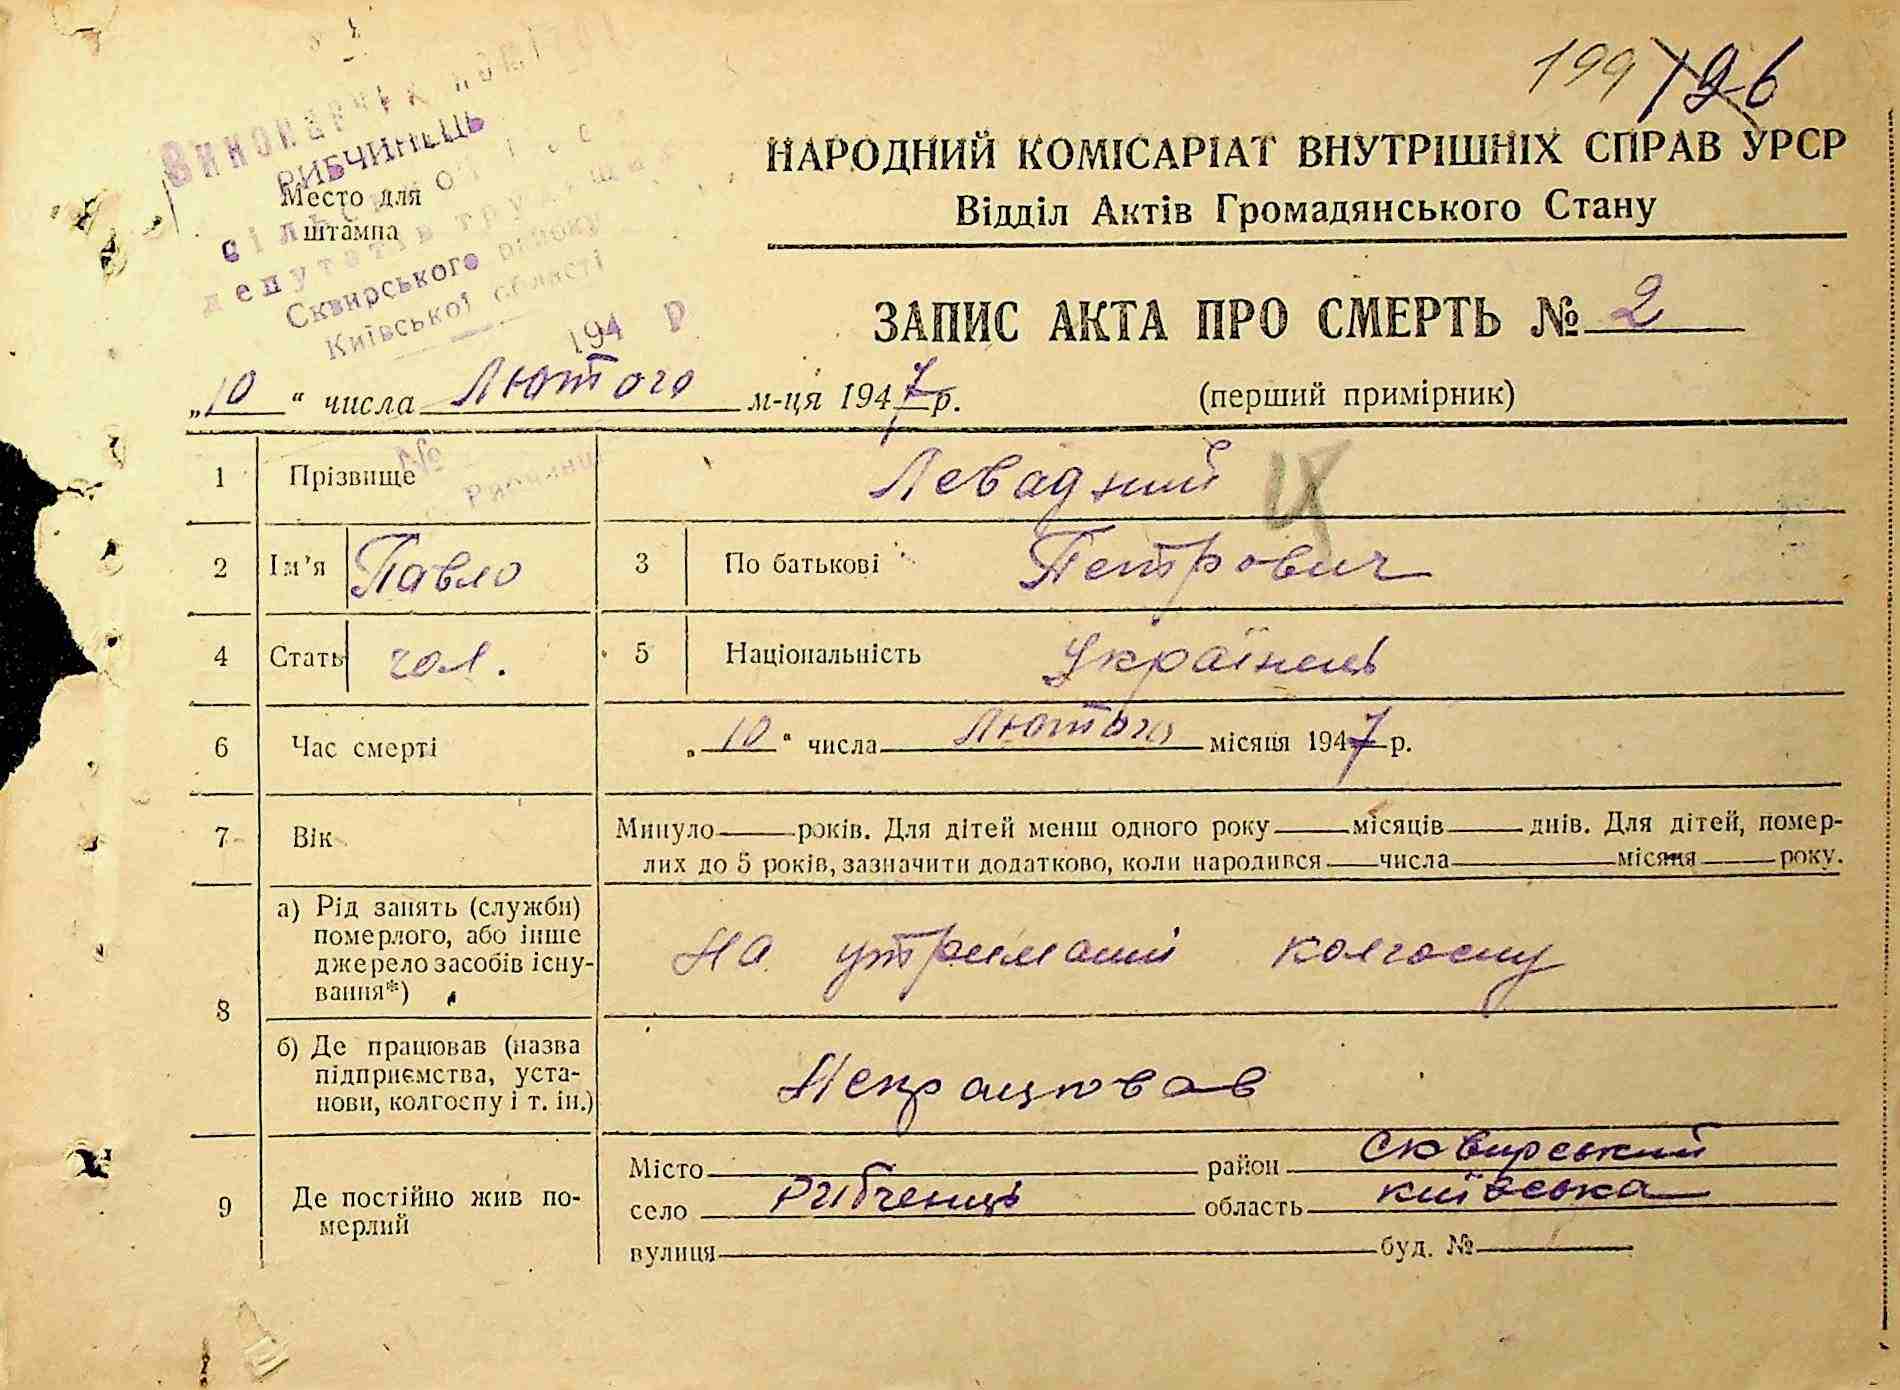 199 126
Виконавчий комітет
РИБЧИНЕЦЬ
Место для
штампа
депутатів трудящих
Сквирського району
Київської області
194 р
№
НАРОДНИЙ КОМІСАРІАТ ВНУТРІШНІХ СПРАВ УРСР
Відділ Актів Громадянського Стану
ЗАПИС АКТА ПРО СМЕРТЬ № 2
„10“ числа Лютого м-ця 1947 р. (перший примірник)
1 Прізвище Левадний IX
2 Ім'я Павло 3 По батькові Петрович
4 Стать чол. 5 Національність Українець
6 Час смерті „10“ числа Лютого місяця 1947 р.
7 Вік Минуло років. Для дітей менш одного року місяців днів. Для дітей, помер-
лих до 5 років, зазначити додатково, коли народився числа місяця року.
8 а) Рід занять (служби)
померлого, або інше
джерело засобів існу-
вання*)
На утриманні колгоспу
б) Де працював (назва
підприємства, уста-
нови, колгоспу і т. ін.)
Непрацював
9 Де постійно жив по-
мерлий
Місто район Сквирський
село Рибченці область київська
вулиця буд. №